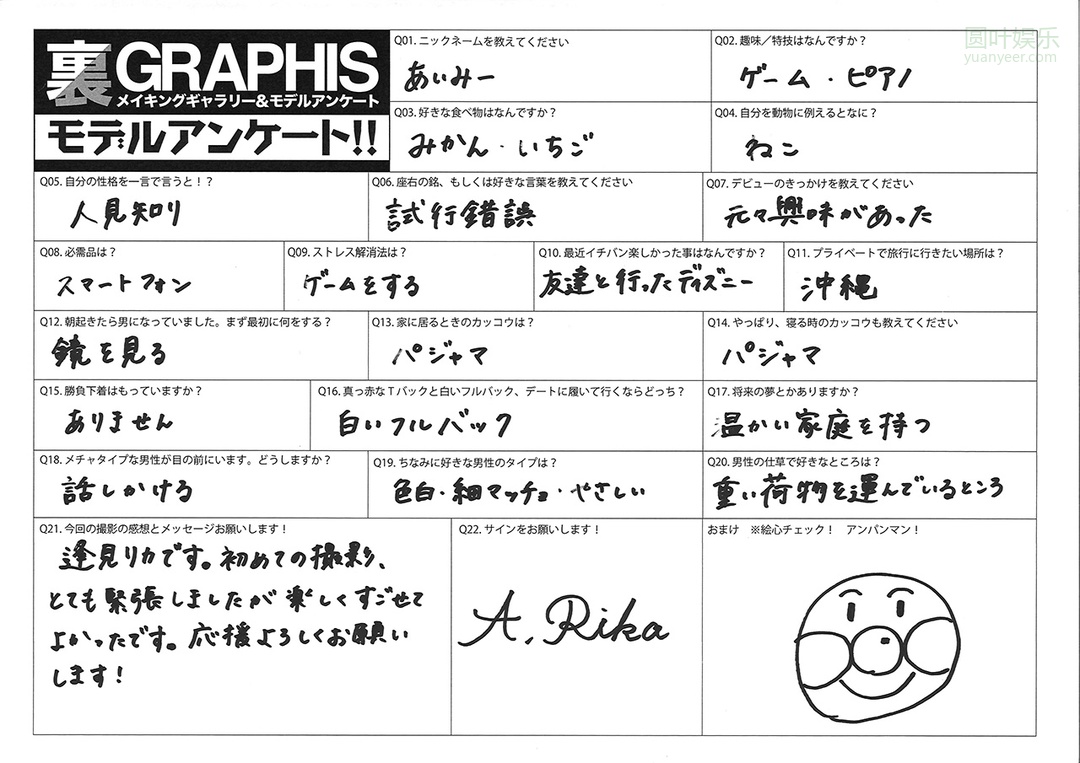 裏GRAPHIS
メイキングギャラリー&モデルアンケート
モデルアンケート!!
圆叶娱乐
yuanyeer.com
Q01. ニックネームを教えてください
あいみー
Q02. 趣味／特技はなんですか？
ゲーム・ピアノ
Q03. 好きな食べ物はなんですか？
みかん・いちご
Q04. 自分を動物に例えるとなに？
ねこ
Q05. 自分の性格を一言で言うと！？
人見知り
Q06. 座右の銘、もしくは好きな言葉を教えてください
試行錯誤
Q07. デビューのきっかけを教えてください
元々興味があった
Q08. 必需品は？
スマートフォン
Q09. ストレス解消法は？
ゲームをする
Q10. 最近イチバン楽しかった事はなんですか？
友達と行ったディズニー
Q11. プライベートで旅行に行きたい場所は？
沖縄
Q12. 朝起きたら男になっていました。まず最初に何をする？
鏡を見る
Q13. 家に居るときのカッコウは？
パジャマ
Q14. やっぱり、寝る時のカッコウも教えてください
パジャマ
Q15. 勝負下着はもっていますか？
ありません
Q16. 真っ赤なＴバックと白いフルバック、デートに履いて行くならどっち？
白いフルバック
Q17. 将来の夢とかありますか？
温かい家庭を持つ
Q18. メチャタイプな男性が目の前にいます。どうしますか？
話しかける
Q19. ちなみに好きな男性のタイプは？
色白・細マッチョ・やさしい
Q20. 男性の仕草で好きなところは？
重い荷物を運んでいるところ
Q21. 今回の撮影の感想とメッセージお願いします！
逢見リカです。初めての撮影、
とても緊張しましたが楽しくすごせて
よかったです。応援よろしくお願い
します！
Q22. サインをお願いします！
A. Rika
おまけ　※絵心チェック！　アンパンマン！